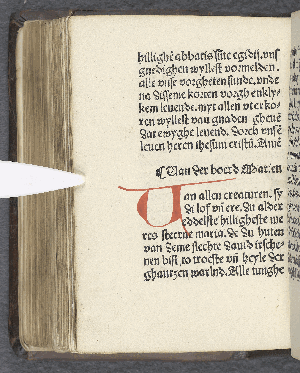 hillighē abbatis sūte egidij. vns
gnedighen wyllest vormelden.
alle vnse vorgheten sunde. vnde
na dissene korten vorghenklyk
kem leuende. myt allen vterko
ren wyllest van gnaden gheuē
dat ewyghe leuend. Dorch vnsē
leuen heren ihesum cristū. Amē
☾ Van der boerd Marien
Van allen creaturen. sy
di lof vn̄ ere. du alder
eddelste hilligheste we
res sterne maria. de du huten
van deme slechte dauid irsche-
nen bist, to troeste vn̄ heyle der
ghantzen warlnd. Alle tunghe